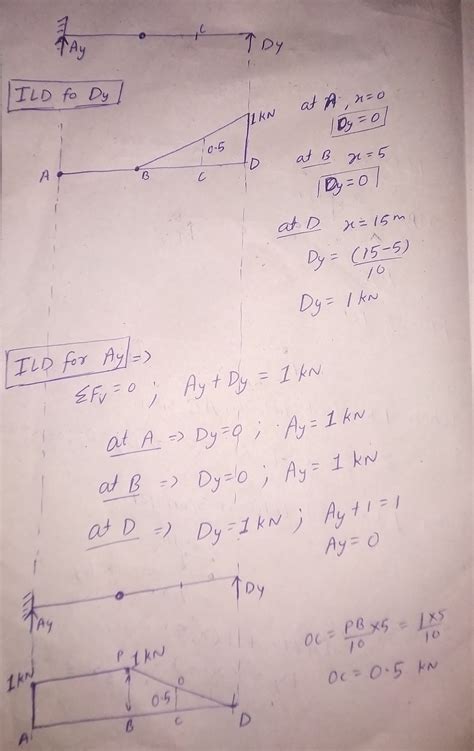 C
Ay
Dy
ILD fo Dy
at A, x=0
Dy=0
1kN
0.5
A
B
C
D
at B x=5
Dy=0
at D x=15m
Dy = (15-5)/10
Dy = 1 kN
ILD for Ay =>
ΣFv=0 ; Ay+Dy = 1 kN
at A => Dy=0 ; Ay=1 kN
at B => Dy=0 ; Ay=1 kN
at D => Dy=1 kN ; Ay+1=1
Ay=0
Dy
Ay
OC = PB/10 ×5 = 1×5/10
OC = 0.5 kN
P
1kN
1kN
O
0.5
A
B
C
D